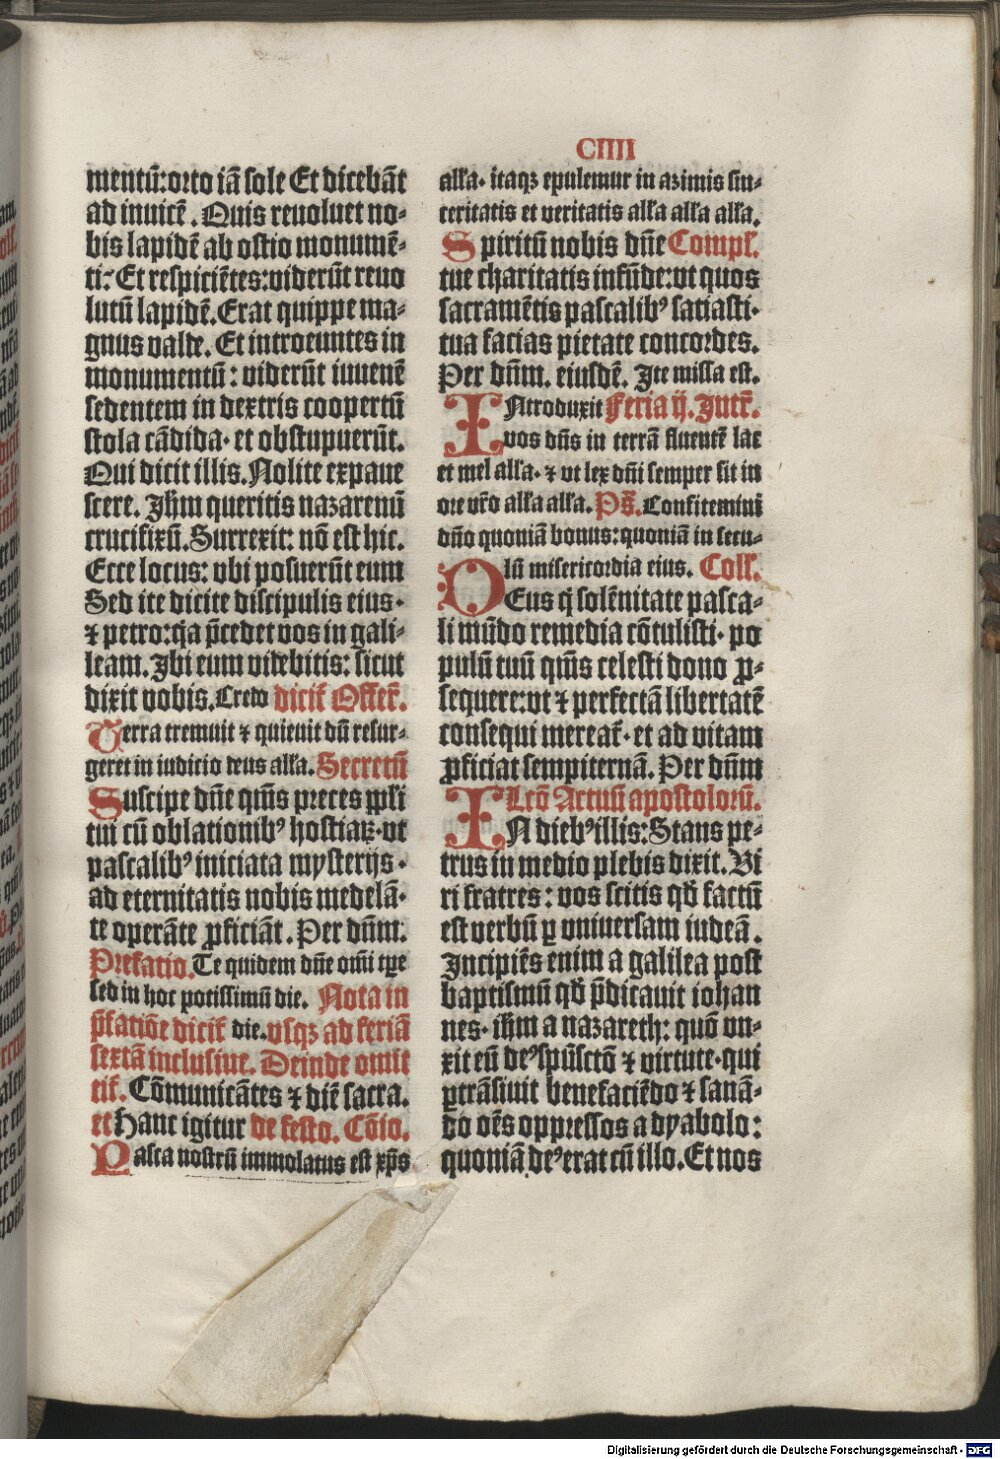 CIIII
mentū:orto iā sole Et dicebāt
ad inuicē. Quis reuoluet no-
bis lapidē ab ostio monumē-
ti: Et respiciētes:viderūt reuo
lutū lapidē. Erat quippe ma-
gnus valde. Et introeuntes in
monumentū: viderūt iuuenē
sedentem in dextris coopertū
stola cādida· et obstupuerūt.
Qui dicit illis. Nolite expaue
scere. Jhm queritis nazarenū
crucifixū. Surrexit: nō est hic.
Ecce locus: vbi posuerūt eum
Sed ite dicite discipulis eius·
⁊ petro:q̄a p̄cedet vos in gali-
leam. Jbi eum videbitis: sicut
dixit vobis. Credo dicit͛ Offer͛.
Terra tremuit ⁊ quieuit dū resur-
geret in iudicio deus alľa. Secretū
Suscipe dn̄e qm̄s preces ppľi
tui cū oblationibꝰ hostiaꝝ·vt
pascalibꝰ iniciata mysterijs·
ad eternitatis nobis medelā-
te operāte ꝓficiāt. Per dn̄m:
Prefatio. Te quidem dn̄e om̄i tp̄e
sed in hoc potissimū die. Nota in
p̄fatiōe dicit͛ die. vsqꝫ ad feriā
sextā inclusiue. Deinde omit
tit͛. Cōmunicātes ⁊ diē sacra.
et Hanc igitur de festo. Cōio.
Pasca nostrū immolatus est xp̄s
alľa· itaqꝫ epulemur in azimis sin-
ceritatis et veritatis alľa alľa alľa.
Spiritū nobis dn̄e Compľ.
tue charitatis infūde:vt quos
sacramētis pascalibꝰ satiasti·
tua facias pietate concordes.
Per dn̄m. eiusdē. Ite missa est.
INtroduxit Feria ij. Intr͛.
vos dn̄s in terrā fluentē lac
et mel alľa· ⁊ vt lex dn̄i semper sit in
ore vr̄o alľa alľa. Ps̄. Confitemini
dn̄o quoniā bonus:quoniā in secu-
lū misericordia eius. Colľ.
DEus q̇ solēnitate pasca-
li mūdo remedia cōtulisti· po
pulū tuū qm̄s celesti dono ꝓ-
sequere:vt ⁊ perfectā libertatē
consequi mereat͛· et ad vitam
ꝓficiat sempiternā. Per dn̄m
Lcō Actuū apostoloꝝ.
IN diebꝰ illis: Stans pe-
trus in medio plebis dixit. Vi
ri fratres: vos scitis qđ factū
est verbū ꝑ vniuersam iudeā.
Incipiēs enim a galilea post
baptismū qđ p̄dicauit iohan
nes· ihm a nazareth: quō vn-
xit eū deꝰ spūsctō ⁊ virtute·qui
ꝑtrāsiuit benefaciēdo ⁊ sanā-
do oēs oppressos a dyabolo:
quoniā deꝰ erat cū illo. Et nos
Digitalisierung gefördert durch die Deutsche Forschungsgemeinschaft - DFG